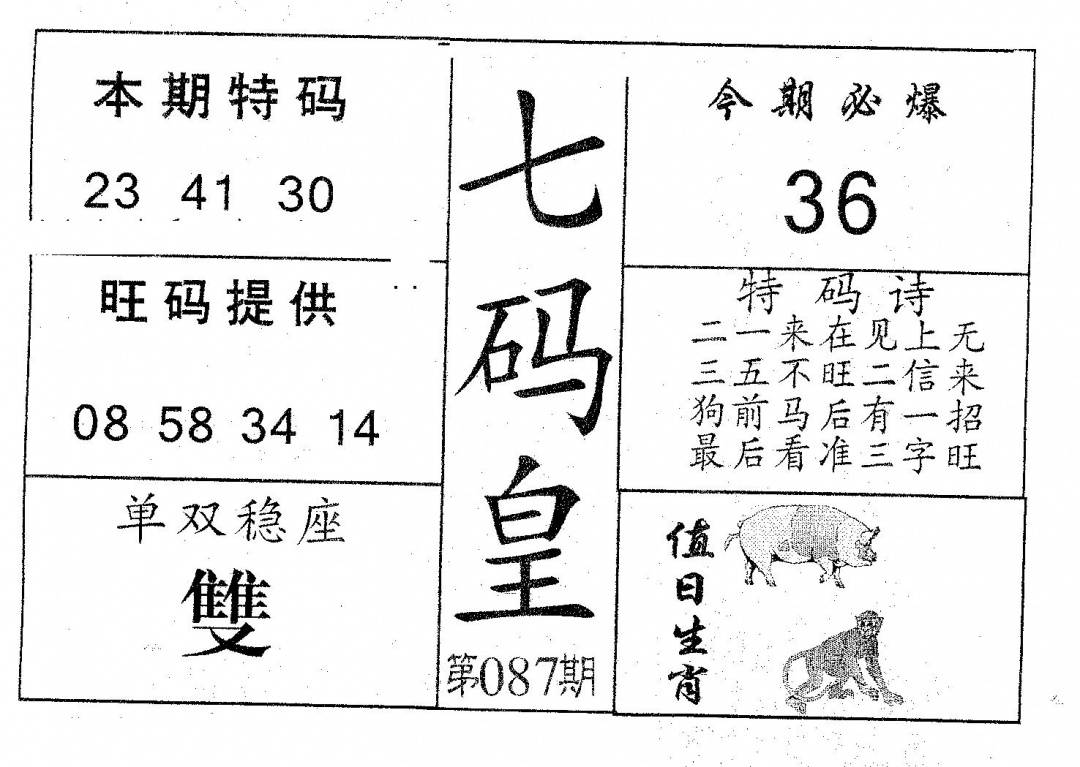 本期特码
23 41 30
旺码提供
08 58 34 14
单双稳座
雙
七码皇
第087期
今期必爆
36
特码诗
二一来在见上无
三五不旺二信来
狗前马后有一招
最后看准三字旺
值日生肖